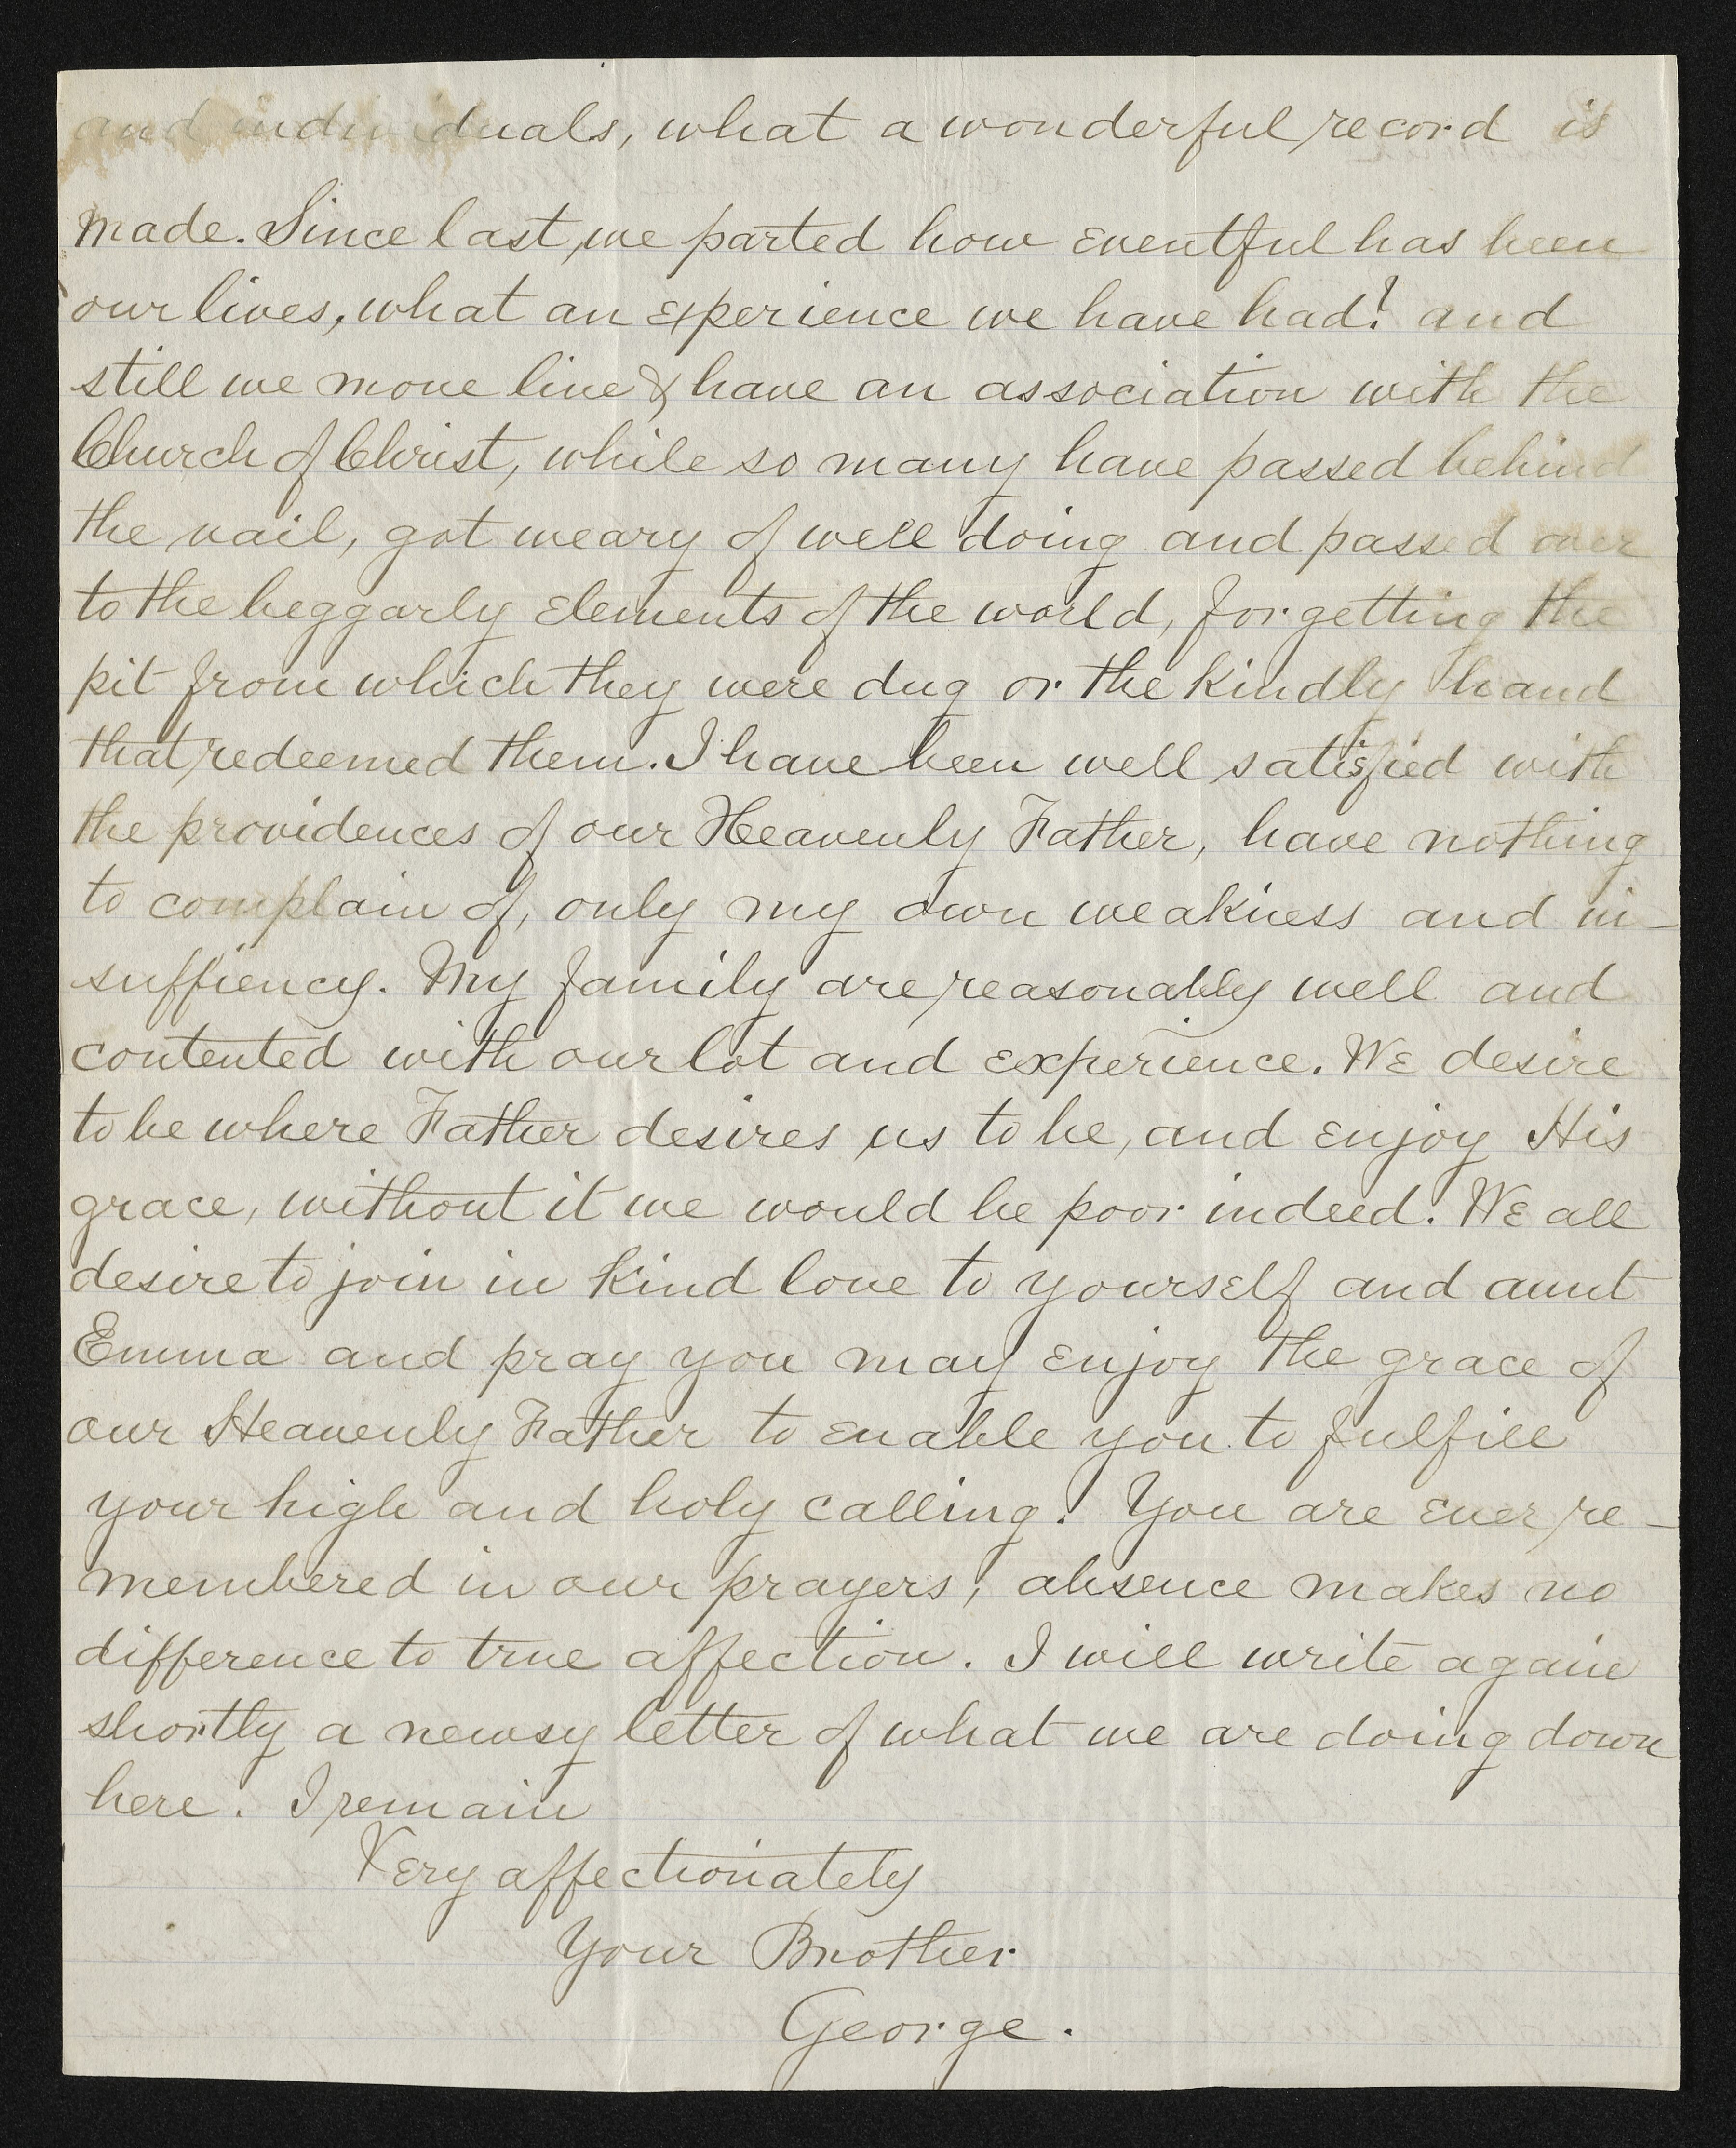 and individuals, what a wonderful record is
made. Since last, we parted how eventful has been
our lives, what an experience we have had! and
still we move live & have an association with the
Church of Christ, while so many have passed behind
the vail, got weary of well doing and passed over
to the beggarly elements of the world, forgetting the
pit from which they were dug or the kindly hand
that redeemed them. I have been well satisfied with
the providences of our Heavenly Father, have nothing
to complain of, only my own weakness and in-
suffiency. My family are reasonably well and
contented with our lot and experience. We desire
to be where Father desires us to be, and enjoy His
grace, without it we would be poor indeed! We all
desire to join in kind love to yourself and aunt
Emma and pray you may enjoy the grace of
our Heavenly Father to enable you to fulfill
your high and holy calling! You are ever re-
membered in our prayers, absence makes no
difference to true affection. I will write again
shortly a newsy letter of what we are doing down
here. I remain
Very affectionately
Your Brother
George.